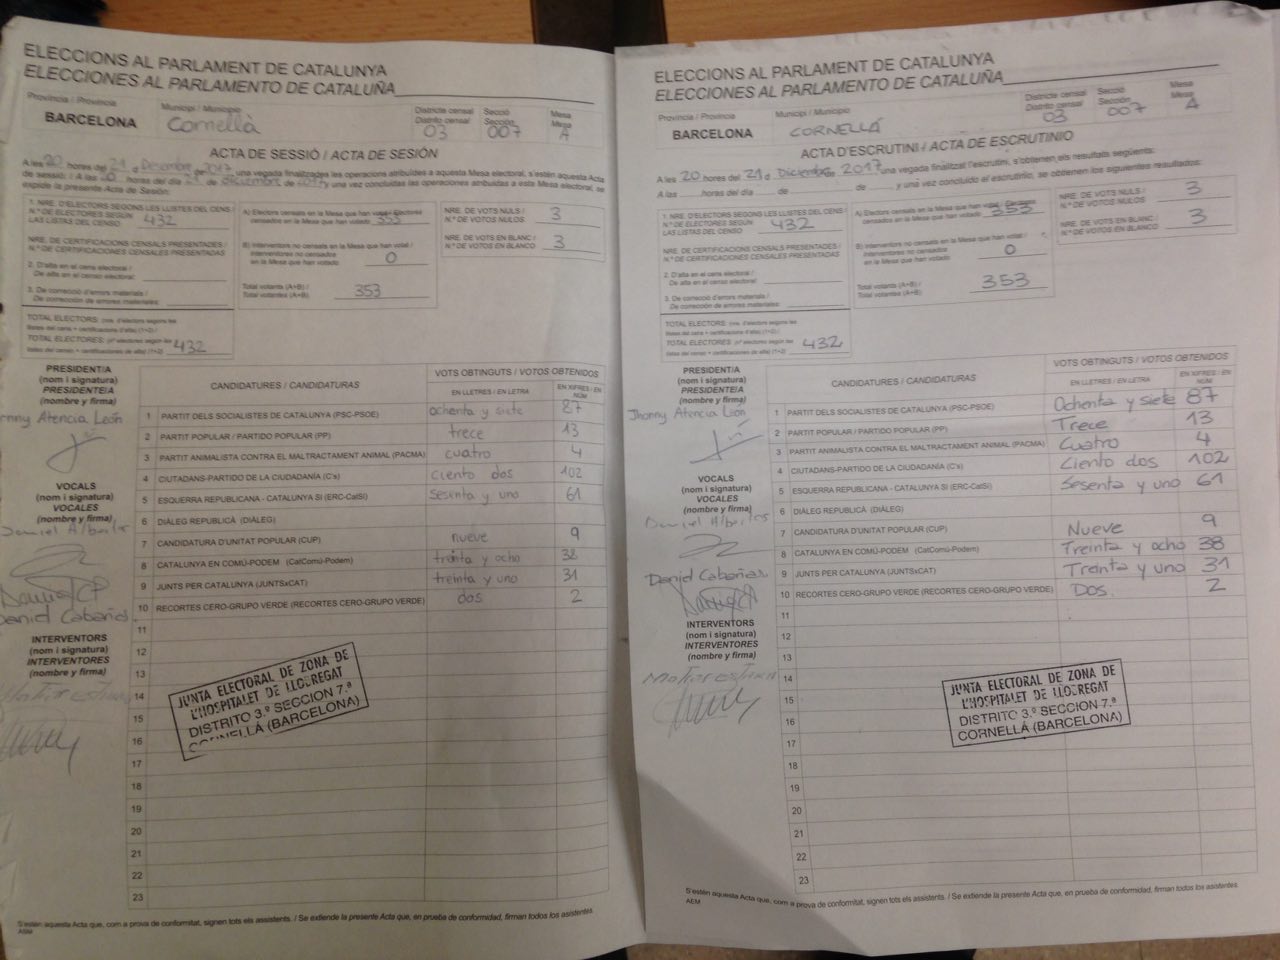 ELECCIONS AL PARLAMENT DE CATALUNYA
ELECCIONES AL PARLAMENTO DE CATALUÑA
Província / Provincia
BARCELONA
Municipi / Municipio
Cornellà
Districte censal
Distrito censal
03
Secció
Sección
007
Mesa
Mesa
A
ACTA DE SESSIÓ / ACTA DE SESIÓN
A les 20 hores del 21 d Desembre de 2017 una vegada finalitzades les operacions atribuïdes a aquesta Mesa electoral, s'estén aquesta Acta
de sessió: / A las 20 horas del día 21 de diciembre de 2017 y una vez concluidas las operaciones atribuidas a esta Mesa electoral, se
expide la presente Acta de Sesión:
1. NRE. D'ELECTORS SEGONS LES LLISTES DEL CENS /
N.º DE ELECTORES SEGÚN
LAS LISTAS DEL CENSO 432
NRE. DE CERTIFICACIONS CENSALS PRESENTADES /
N.º DE CERTIFICACIONES CENSALES PRESENTADAS
2. D'alta en el cens electoral /
De alta en el censo electoral:
3. De correcció d'errors materials /
De corrección de errores materiales:
TOTAL ELECTORS: (nre. d'electors segons les
llistes del cens + certificacions d'alta) (1+2) /
TOTAL ELECTORES: (nº electores según las
listas del censo + certificaciones de alta) (1+2) 432
A) Electors censats en la Mesa que han votat / Electores
censados en la Mesa que han votado 353
B) Interventors no censats en la Mesa que han votat /
Interventores no censados
en la Mesa que han votado 0
Total votants (A+B) /
Total votantes (A+B) 353
NRE. DE VOTS NULS /
N.º DE VOTOS NULOS 3
NRE. DE VOTS EN BLANC /
N.º DE VOTOS EN BLANCO 3
PRESIDENT/A
(nom i signatura)
PRESIDENTE/A
(nombre y firma)
nny Atencia León
VOCALS
(nom i signatura)
VOCALES
(nombre y firma)
Daniel
Daniel Cabañas
INTERVENTORS
(nom i signatura)
INTERVENTORES
(nombre y firma)
CANDIDATURES / CANDIDATURAS
VOTS OBTINGUTS / VOTOS OBTENIDOS
EN LLETRES / EN LETRA
EN XIFRES / EN NÚM
1 PARTIT DELS SOCIALISTES DE CATALUNYA (PSC-PSOE) ochenta y siete 87
2 PARTIT POPULAR / PARTIDO POPULAR (PP) trece 13
3 PARTIT ANIMALISTA CONTRA EL MALTRACTAMENT ANIMAL (PACMA) cuatro 4
4 CIUTADANS-PARTIDO DE LA CIUDADANÍA (C's) ciento dos 102
5 ESQUERRA REPUBLICANA - CATALUNYA SÍ (ERC-CatSí) Sesenta y uno 61
6 DIÀLEG REPUBLICÀ (DIÀLEG)
7 CANDIDATURA D'UNITAT POPULAR (CUP) nueve 9
8 CATALUNYA EN COMÚ-PODEM (CatComú-Podem) treinta y ocho 38
9 JUNTS PER CATALUNYA (JUNTSxCAT) treinta y uno 31
10 RECORTES CERO-GRUPO VERDE (RECORTES CERO-GRUPO VERDE) dos 2
11
12
13
14
15
16
17
18
19
20
21
22
23
JUNTA ELECTORAL DE ZONA DE
L'HOSPITALET DE LLOBREGAT
DISTRITO 3.º SECCION 7.ª
CORNELLÁ (BARCELONA)
S'estén aquesta Acta que, com a prova de conformitat, signen tots els assistents. / Se extiende la presente Acta que, en prueba de conformidad, firman todos los asistentes.
ELECCIONS AL PARLAMENT DE CATALUNYA
ELECCIONES AL PARLAMENTO DE CATALUÑA
Província / Provincia
BARCELONA
Municipi / Municipio
CORNELLÁ
Districte censal
Distrito censal
03
Secció
Sección
007
Mesa
Mesa
A
ACTA D'ESCRUTINI / ACTA DE ESCRUTINIO
A les 20 hores del 21 d Diciembre 2017 una vegada finalitzat l'escrutini, s'obtenen els resultats següents:
A las ........ horas del día ..... de ............ de ........, y una vez concluido el escrutinio, se obtienen los resultados siguientes:
1. NRE. D'ELECTORS SEGONS LES LLISTES DEL CENS /
N.º DE ELECTORES SEGÚN
LAS LISTAS DEL CENSO 432
NRE. DE CERTIFICACIONS CENSALS PRESENTADES /
N.º DE CERTIFICACIONES CENSALES PRESENTADAS
2. D'alta en el cens electoral /
De alta en el censo electoral:
3. De correcció d'errors materials /
De corrección de errores materiales:
TOTAL ELECTORS: (nre. d'electors segons les
llistes del cens + certificacions d'alta) (1+2) /
TOTAL ELECTORES: (nº electores según las
listas del censo + certificaciones de alta) (1+2) 432
A) Electors censats en la Mesa que han votat / Electores
censados en la Mesa que han votado 353
B) Interventors no censats en la Mesa que han votat /
Interventores no censados
en la Mesa que han votado 0
Total votants (A+B) /
Total votantes (A+B) 353
NRE. DE VOTS NULS /
N.º DE VOTOS NULOS 3
NRE. DE VOTS EN BLANC /
N.º DE VOTOS EN BLANCO 3
PRESIDENT/A
(nom i signatura)
PRESIDENTE/A
(nombre y firma)
Jhonny Atencia León
VOCALS
(nom i signatura)
VOCALES
(nombre y firma)
Daniel
Daniel Cabañas
INTERVENTORS
(nom i signatura)
INTERVENTORES
(nombre y firma)
CANDIDATURES / CANDIDATURAS
VOTS OBTINGUTS / VOTOS OBTENIDOS
EN LLETRES / EN LETRA
EN XIFRES / EN NÚM
1 PARTIT DELS SOCIALISTES DE CATALUNYA (PSC-PSOE) Ochenta y siete 87
2 PARTIT POPULAR / PARTIDO POPULAR (PP) Trece 13
3 PARTIT ANIMALISTA CONTRA EL MALTRACTAMENT ANIMAL (PACMA) Cuatro 4
4 CIUTADANS-PARTIDO DE LA CIUDADANÍA (C's) Ciento dos 102
5 ESQUERRA REPUBLICANA - CATALUNYA SÍ (ERC-CatSí) Sesenta y uno 61
6 DIÀLEG REPUBLICÀ (DIÀLEG)
7 CANDIDATURA D'UNITAT POPULAR (CUP) Nueve 9
8 CATALUNYA EN COMÚ-PODEM (CatComú-Podem) Treinta y ocho 38
9 JUNTS PER CATALUNYA (JUNTSxCAT) Treinta y uno 31
10 RECORTES CERO-GRUPO VERDE (RECORTES CERO-GRUPO VERDE) Dos. 2
11
12
13
14
15
16
17
18
19
20
21
22
23
JUNTA ELECTORAL DE ZONA DE
L'HOSPITALET DE LLOBREGAT
DISTRITO 3.º SECCION 7.ª
CORNELLÁ (BARCELONA)
S'estén aquesta Acta que, com a prova de conformitat, signen tots els assistents. / Se extiende la presente Acta que, en prueba de conformidad, firman todos los asistentes.
AEM